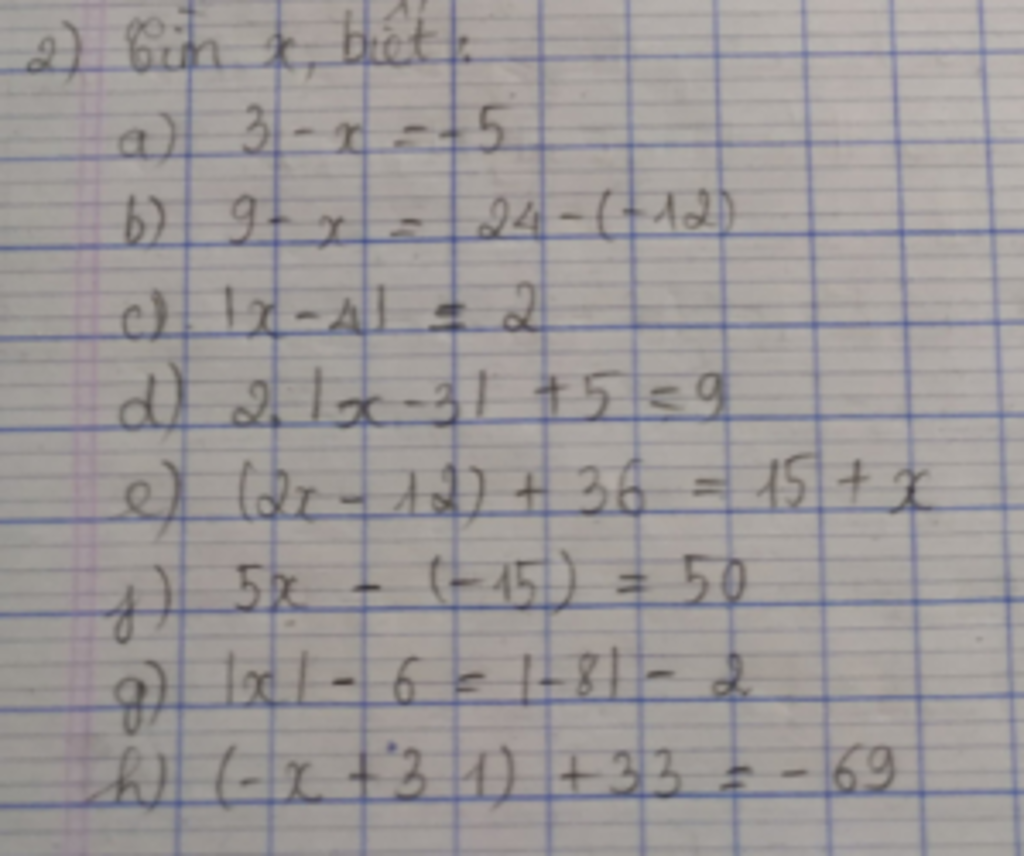 2) Tìm x, biết:
a) 3 - x = - 5
b) 9 - x = 24 - (-12)
c) |x - 4| = 2
d) 2.|x - 3| + 5 = 9
e) (2x - 12) + 36 = 15 + x
f) 5x - (-15) = 50
g) |x| - 6 = |-8| - 2
h) (-x + 31) + 33 = - 69